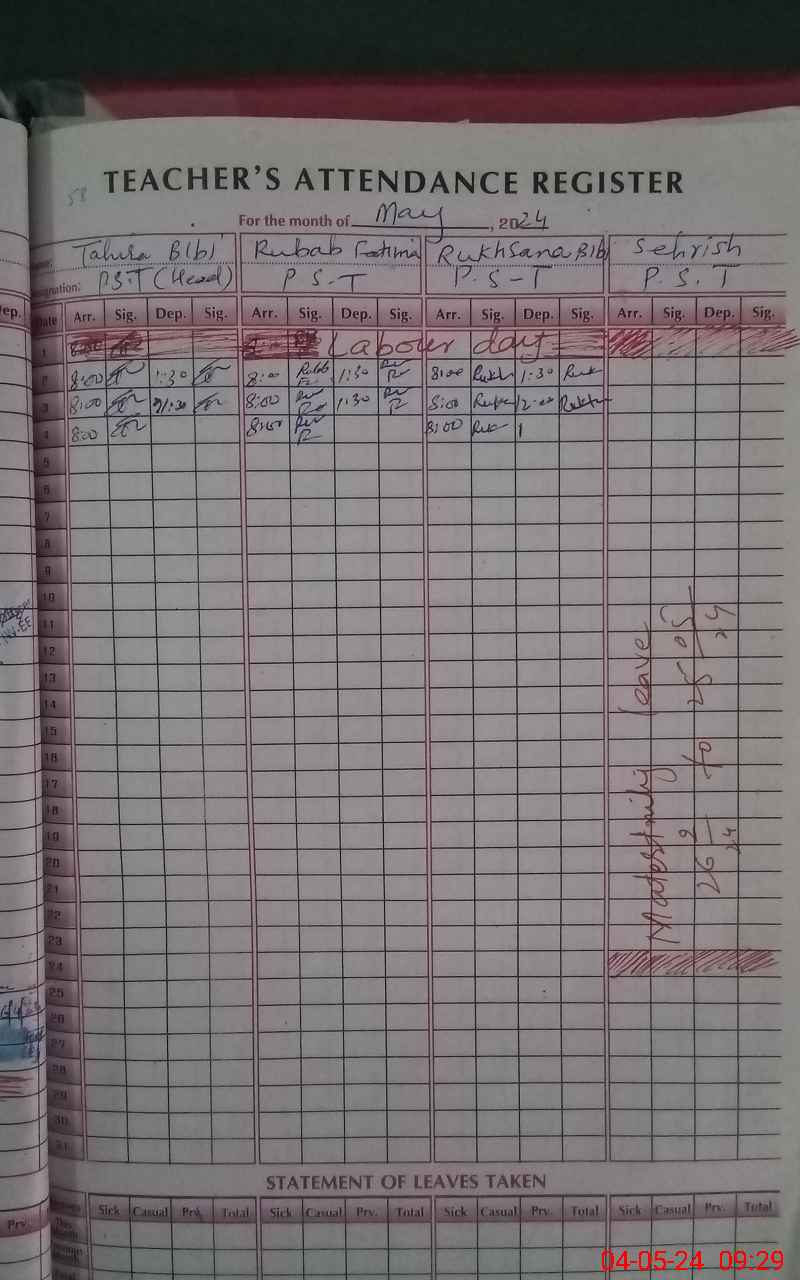 58
TEACHER'S ATTENDANCE REGISTER
For the month of May, 2024
Tahira Bibi Rubab Fatima Rukhsana Bibi Sehrish
gnation: P.S.T (Head) P.S.T P.S-T P.S.T
ep. Date Arr. Sig. Dep. Sig. Arr. Sig. Dep. Sig. Arr. Sig. Dep. Sig. Arr. Sig. Dep. Sig.
1 Labour day
2 8:00 1:30 8:00 1:30 8:00 Rukh 1:30 Ruk
3 8:00 1:30 8:00 1:30 8:00 12:00
4 8:00 8:00 8:00 Ruk 1
5
6
7
8
9
10
11
12
13
14
15
16
17
18
19
20
21
22
23
24
25
26
27
28
29
30
31
Matestnity leave
26 2 24 to 25 05 24
STATEMENT OF LEAVES TAKEN
Prv. Sick Casual Prv. Total Sick Casual Prv. Total Sick Casual Prv. Total Sick Casual Prv. Total
This Month
04-05-24 09:29